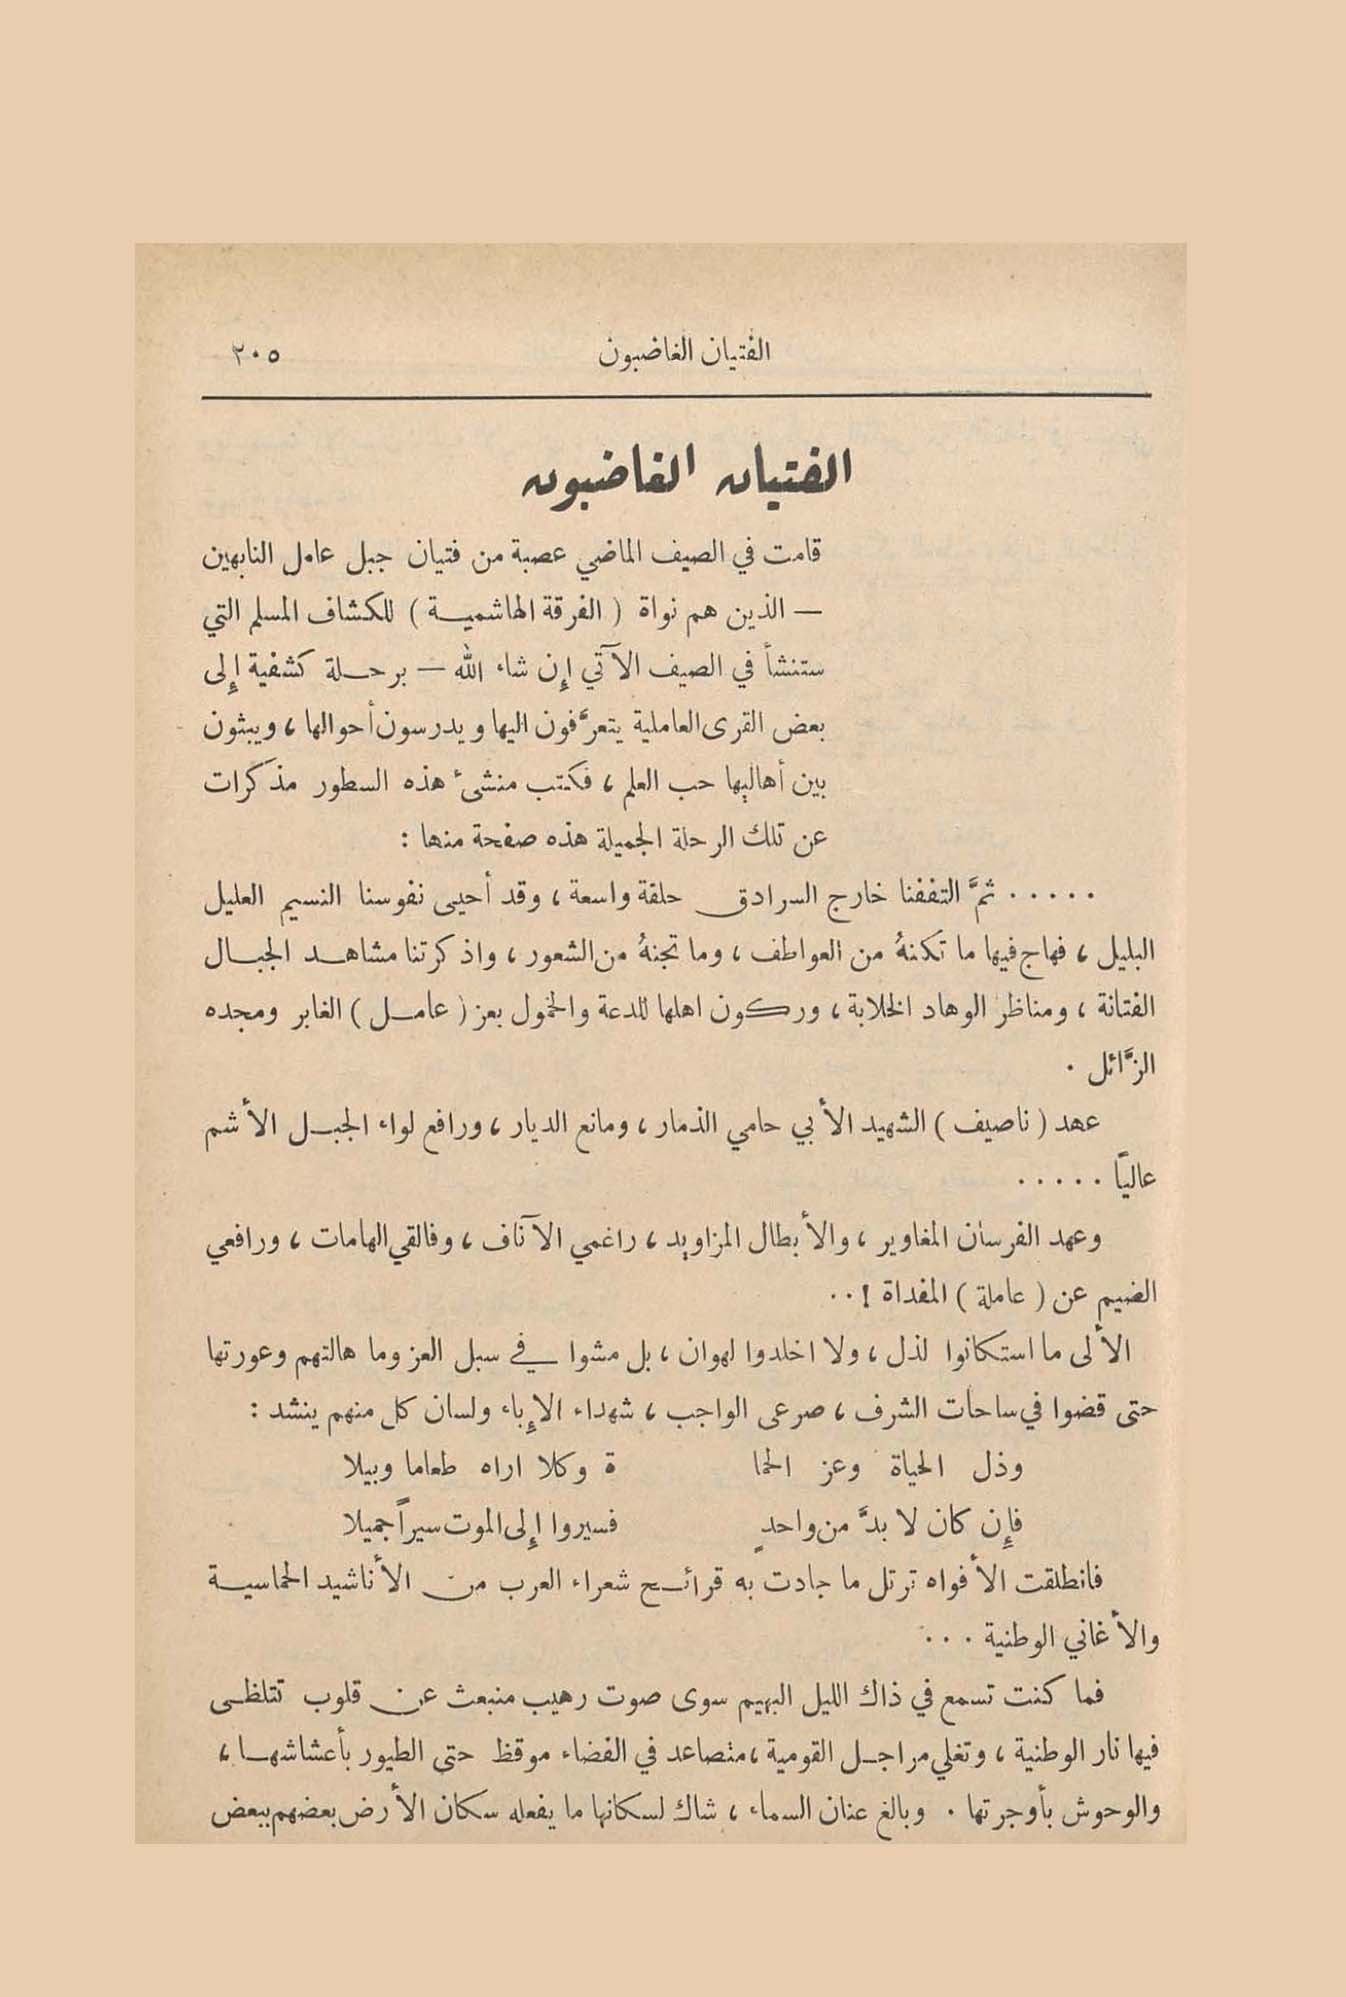 الفتيان الغاضبون ٢٠٥
الفتيان الغاضبون
قامت في الصيف الماضي عصبة من فتيان جبل عامل النابهين
— الذين هم نواة ( الفرقة الهاشمية ) للكشاف المسلم التي
ستنشأ في الصيف الآتي إن شاء الله — برحلة كشفية إلى
بعض القرى العاملية يتعرَّفون اليها ويدرسون أحوالها ، ويبثون
بين أهاليها حب العلم ، فكتب منشئ هذه السطور مذكرات
عن تلك الرحلة الجميلة هذه صفحة منها :
. . . . . ثمَّ التففنا خارج السرادق حلقة واسعة ، وقد أحيى نفوسنا النسيم العليل
البليل ، فهاج فيها ما تكنهُ من العواطف ، وما تجنهُ من الشعور ، واذكرتنا مشاهد الجبال
الفتانة ، ومناظر الوهاد الخلابة ، وركون اهلها للدعة والخمول بعز ( عامل ) الغابر ومجده
الزَّائل .
عهد ( ناصيف ) الشهيد الأبي حامي الذمار ، ومانع الديار ، ورافع لواء الجبل الأشم
عاليًا . . . . .
وعهد الفرسان المغاوير ، والأبطال المزاويد ، راغمي الآناف ، وفالقي الهامات ، ورافعي
الضيم عن ( عاملة ) المفداة ! . .
الألى ما استكانوا لذل ، ولا اخلدوا لهوان ، بل مشوا في سبل العز وما هالتهم وعورتها
حتى قضوا في ساحات الشرف ، صرعى الواجب ، شهداء الإباء ولسان كل منهم ينشد :
وذل الحياة وعز الحما ة وكلا اراه طعاما وبيلا
فإن كان لا بدَّ من واحدٍ فسيروا إلى الموت سيراً جميلا
فانطلقت الأفواه ترتل ما جادت به قرائح شعراء العرب من الأناشيد الحماسية
والأغاني الوطنية . . .
فما كنت تسمع في ذاك الليل البهيم سوى صوت رهيب منبعث عن قلوب تتلظى
فيها نار الوطنية ، وتغلي مراجل القومية ، متصاعد في الفضاء موقظ حتى الطيور بأعشاشها ،
والوحوش بأوجرتها . وبالغ عنان السماء ، شاك لسكانها ما يفعله سكان الأرض بعضهم ببعض